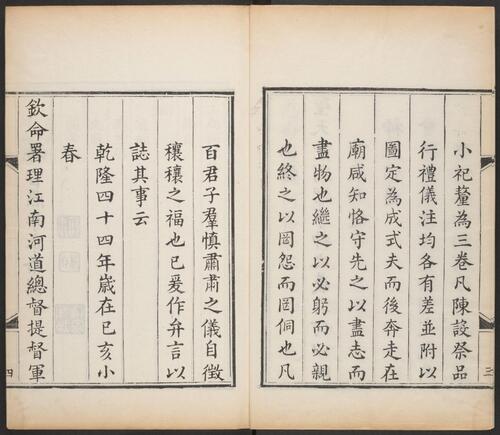 小祀釐為三卷凡陳設祭品
行禮儀注均各有差並附以
圖定為成式夫而後奔走在
廟咸知恪守先之以盡志而
盡物也繼之以必躬而必親
也終之以罔怨而罔侗也凡
三
百君子羣慎肅肅之儀自徵
穰穰之福也已爰作弁言以
誌其事云
乾隆四十四年嵗在己亥小
春
欽命署理江南河道總督提督軍
四